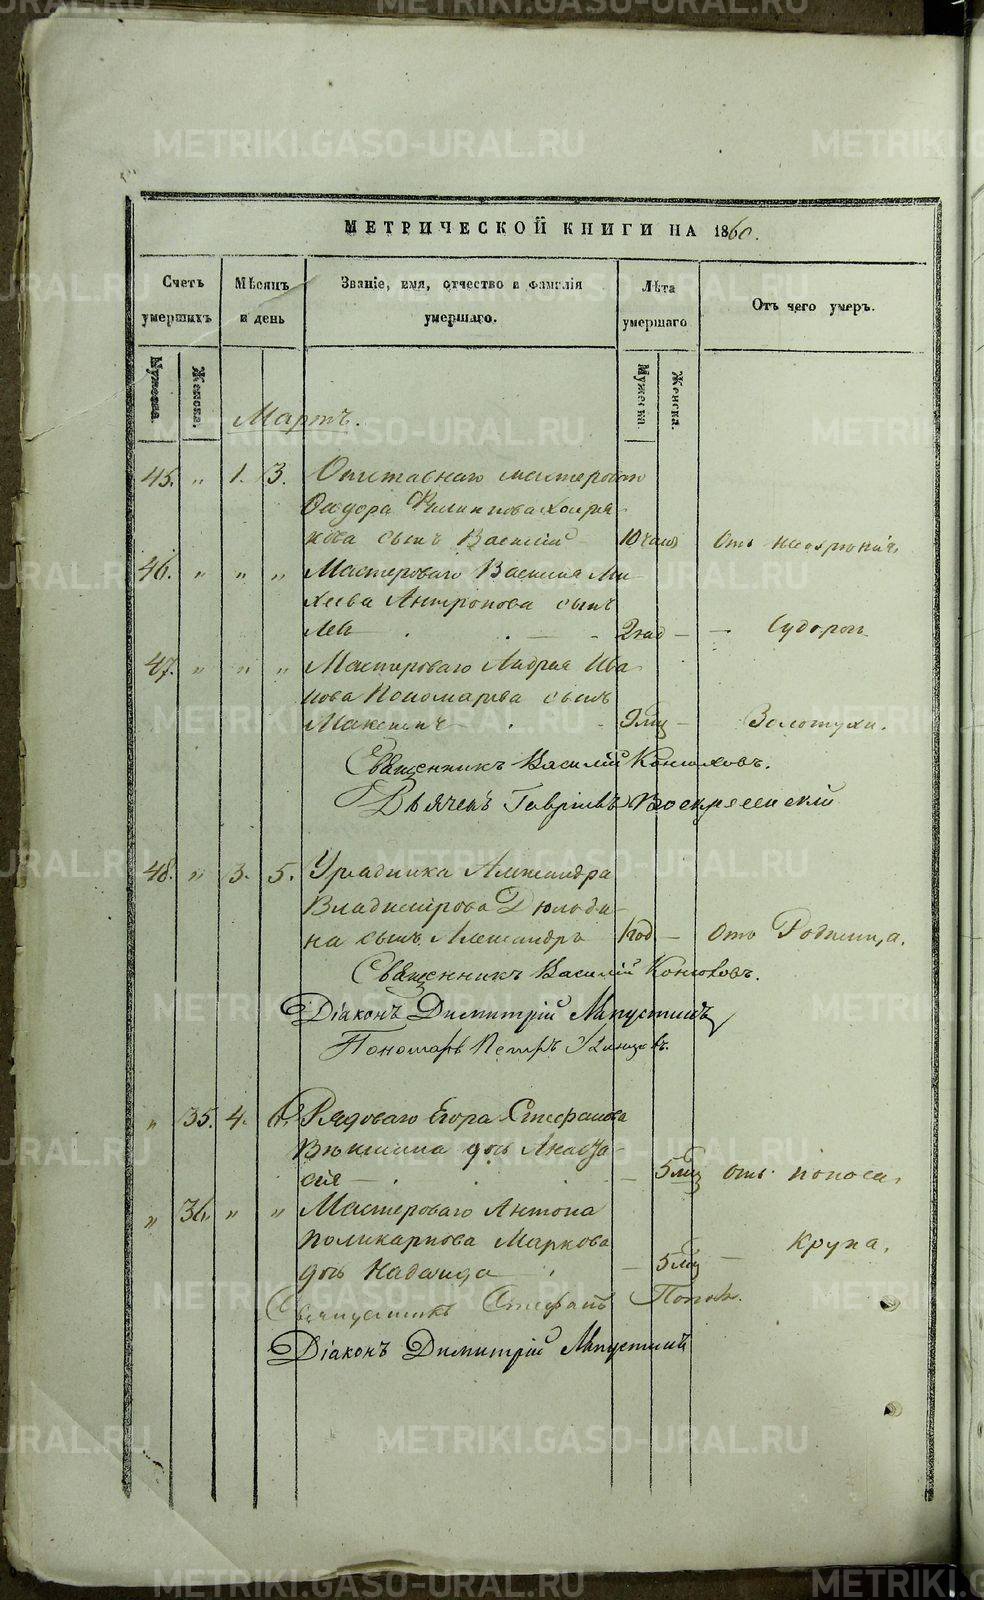 METRIKI.GASO-URAL.RU
МЕТРИЧЕСКОЙ КНИГИ НА 1860.
Счетъ умершихъ
Мѣсяцъ и день
Званіе, имя, отчество и фамилія умершаго.
Лѣта умершаго
Отъ чего умеръ.
Мужеска.
Женска.
Мужеска.
Женска.
Мартъ.
45. " 1. 3. мастероваго
Филиппова
сынъ Василій 10 Отъ
46. " " " Мастероваго Василія Ми-
хѣева Антропова сынъ
Левъ 2 год — Судорог.
47. " " " Мастероваго Андрея Ива-
нова Пономарева сынъ
Максимъ 9 мц — Золотухи.
Священникъ Василій Конюховъ.
Дьячекъ Гавріилъ Воскресенскій
48. " 3. 5. Урядника Александра
Владимірова
на сынъ Александръ 1 год — отъ Родимца.
Священникъ Василій Конюховъ.
Діаконъ Димитрій
Пономарь Петръ
" 35. 4. 6. Рядоваго Егора Стефанова
дочь Анаста-
сія — 5 мц отъ поноса.
" 36. " " Мастероваго Антона
Поликарпова Маркова
дочь Надежда — 5 мц — крупа.
Священникъ Стефанъ Попов.
Діаконъ Димитрій